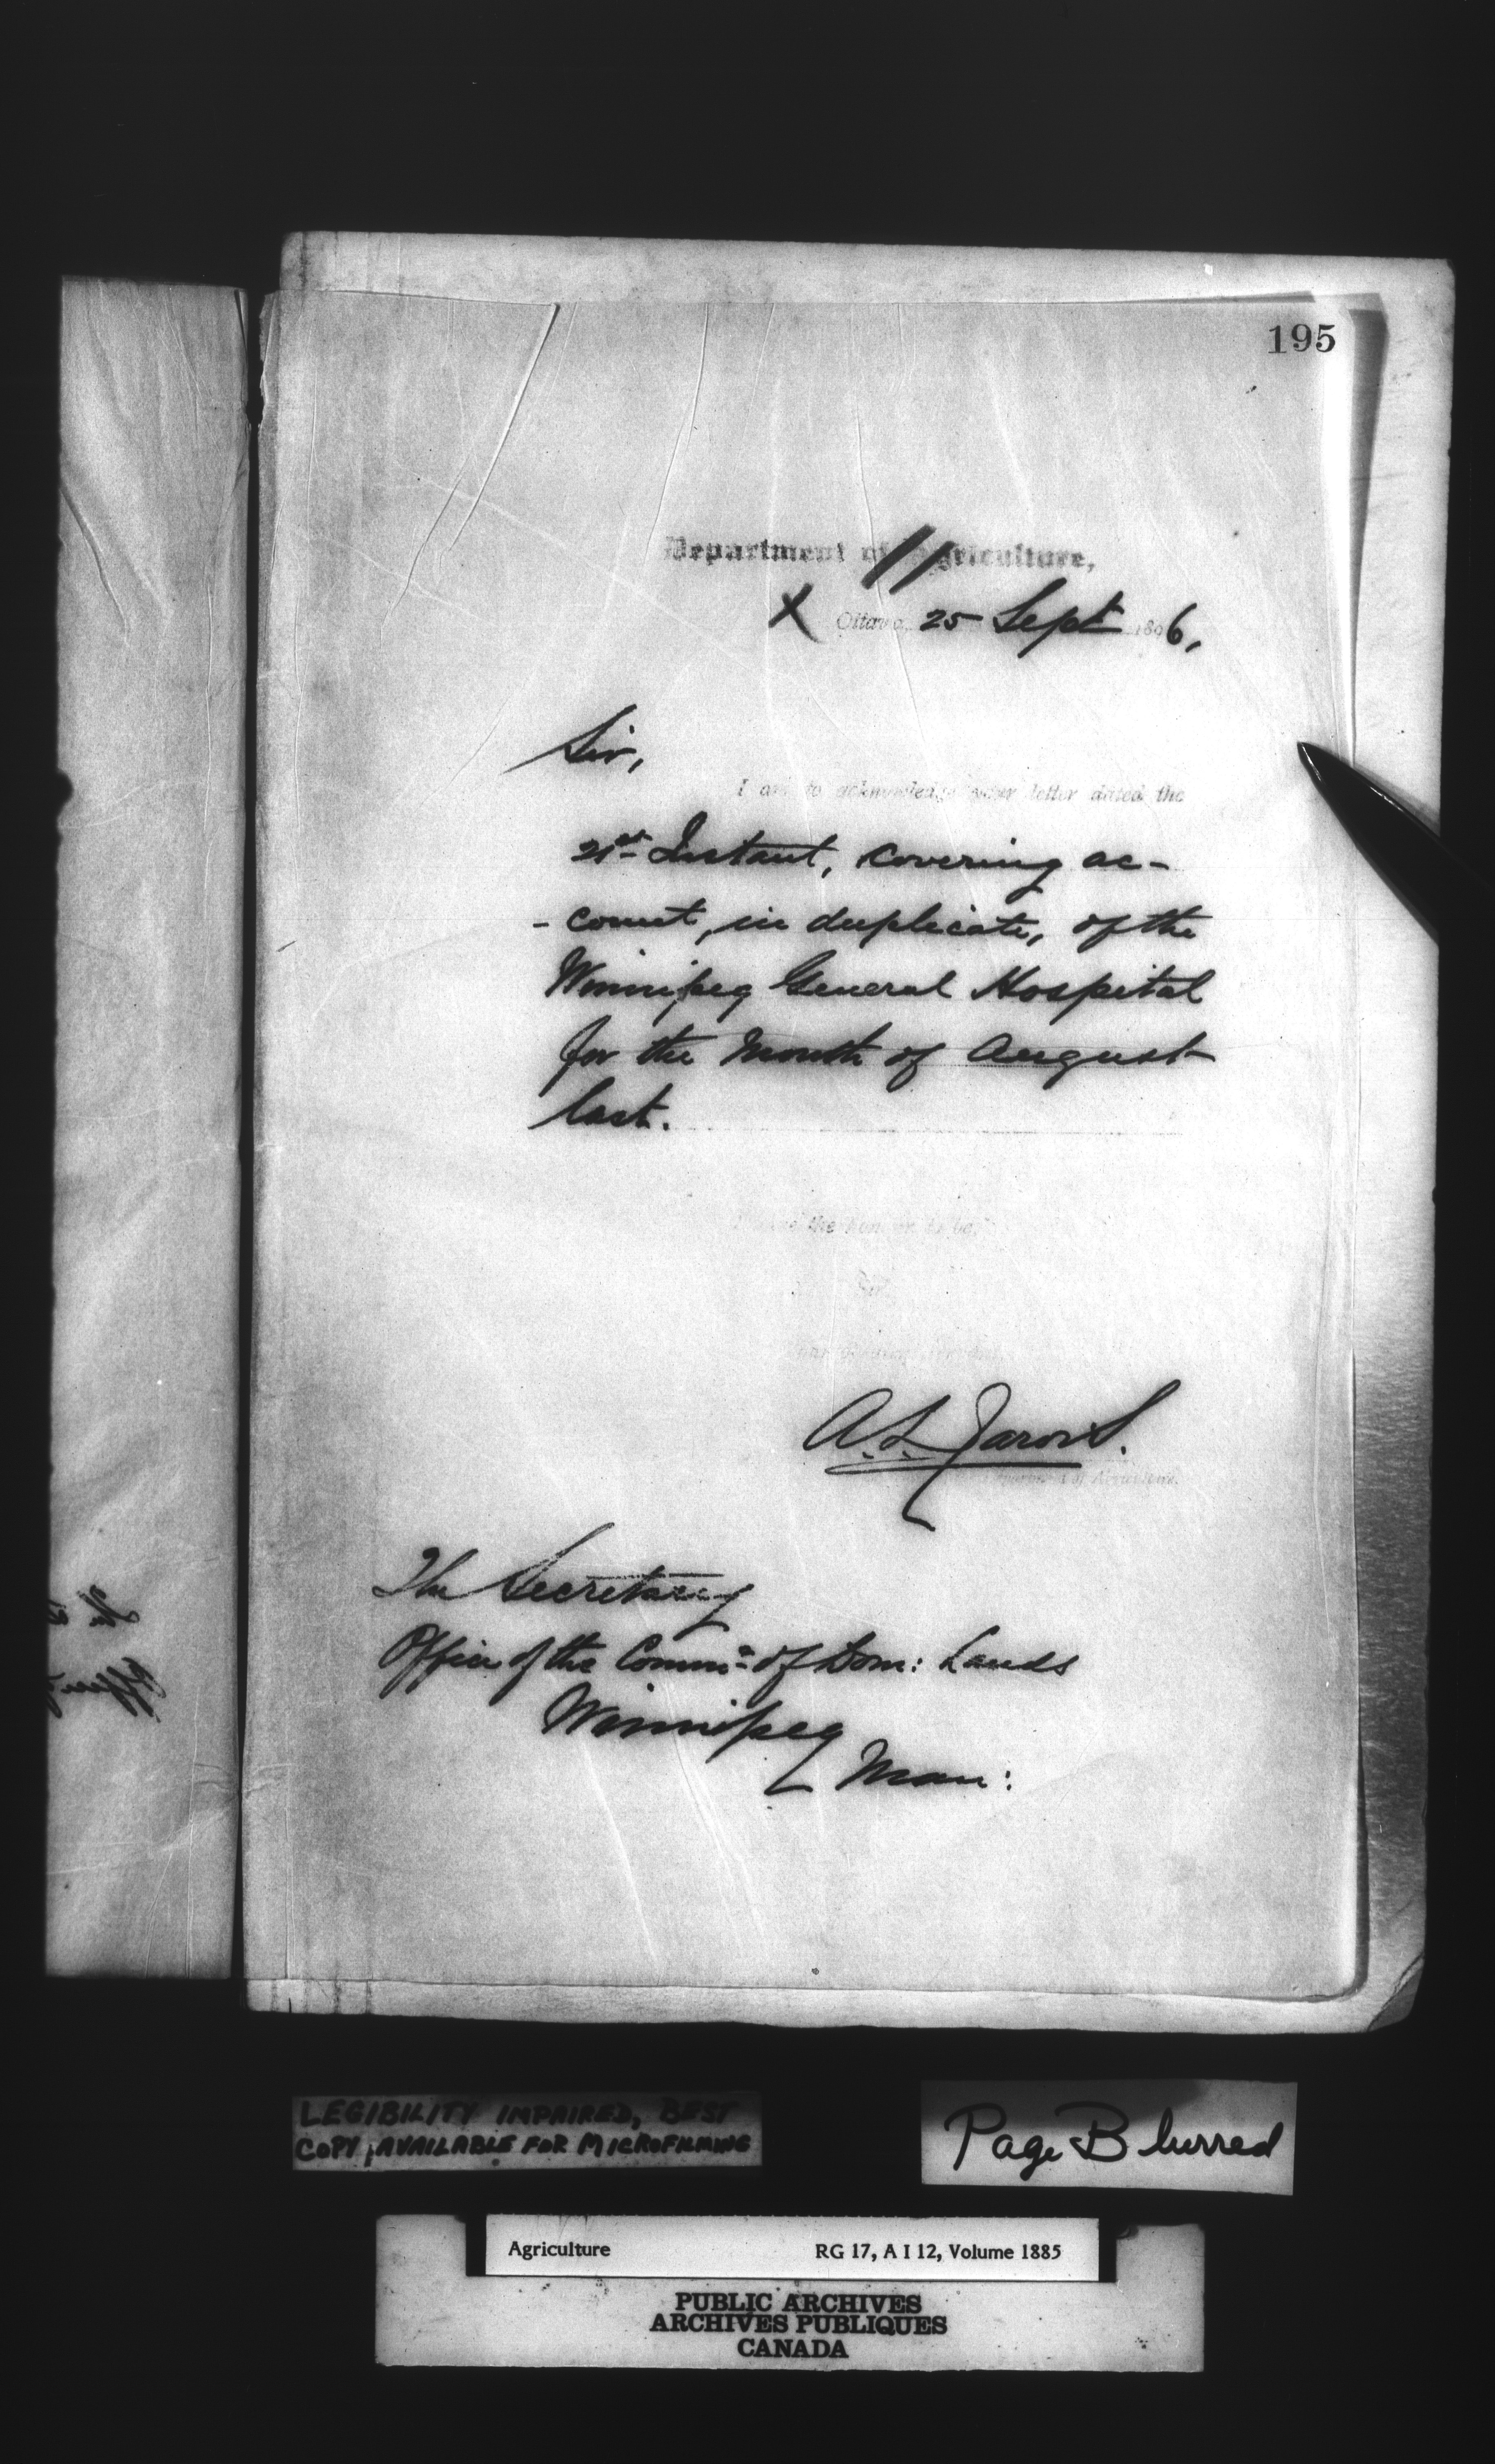 195
Department of Agriculture,
X Ottawa, 25 Sept 1896,
Sir,
I am to acknowledge your letter dated the
21st Instant, covering ac-
- count, in duplicate, of the
Winnipeg General Hospital
for the Month of August
last.
the honour to be,
A. L. Jarvis.
Department of Agriculture.
The Secretary
Office of the Commr of Dom: Lands
Winnipeg
Man:
LEGIBILITY IMPAIRED, BEST
COPY AVAILABLE FOR MICROFILMING
Page Blurred
Agriculture RG 17, A I 12, Volume 1885
PUBLIC ARCHIVES
ARCHIVES PUBLIQUES
CANADA